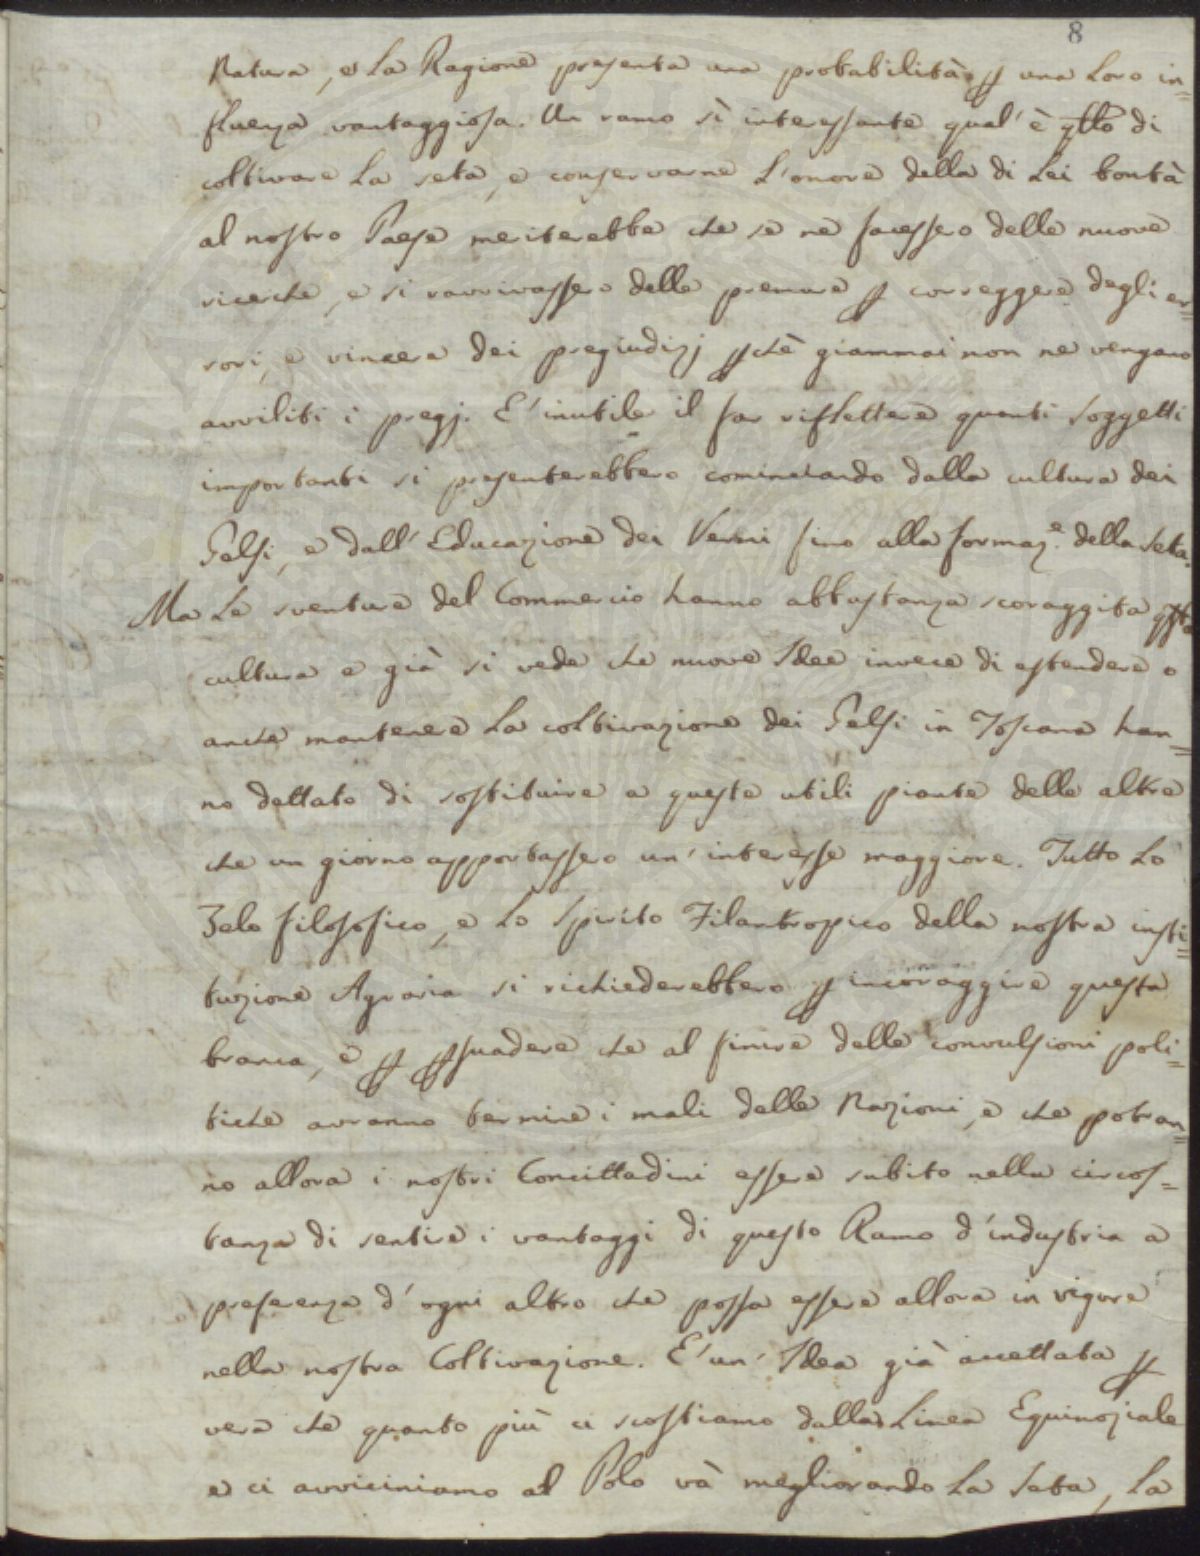 8
Natura, e la Ragione presenta una probabilità p una loro in=
fluenza vantaggiosa. Un ramo sì interessante qual'è qtto di
coltivare la seta, e conservarne l'onore della di lei bontà
al nostro Paese meriterebbe che se ne facessero delle nuove
ricerche, e si ravvivassero delle premure p correggere degli er=
rori, e vincere dei pregiudizj pchè giammai non ne vengano
avviliti i pregj. E' inutile il far riflettere quanti soggetti
importanti si presenterebbero cominciando dalla cultura dei
Gelsi, e dall'Educazione dei Vermi fino alla formaze. della seta.
Ma le sventure del Commercio hanno abbastanza scoraggita qsta
cultura e già si vede che nuove Idee invece di estendere o
anche mantenere la coltivazione dei Gelsi in Toscana han=
no dettato di sostituire a queste utili piante delle altre
che un giorno apportassero un'interesse maggiore. Tutto lo
Zelo filosofico, e lo Spirito Filantropico della nostra insti=
tuzione Agraria si richiederebbero p incoraggire questa
branca, e p psuadere che al finire delle convulsioni poli=
tiche avranno termine i mali delle Nazioni, e che potran=
no allora i nostri Concittadini essere subito nella circos=
tanza di sentire i vantaggi di questo Ramo d'industria a
preferenza d'ogni altro che possa essere allora in vigore
nella nostra Coltivazione. E' un'Idea già accettata p
vera che quanto più ci scostiamo dalla Linea Equinoziale
e ci avviciniamo al Polo và megliorando la Seta, la